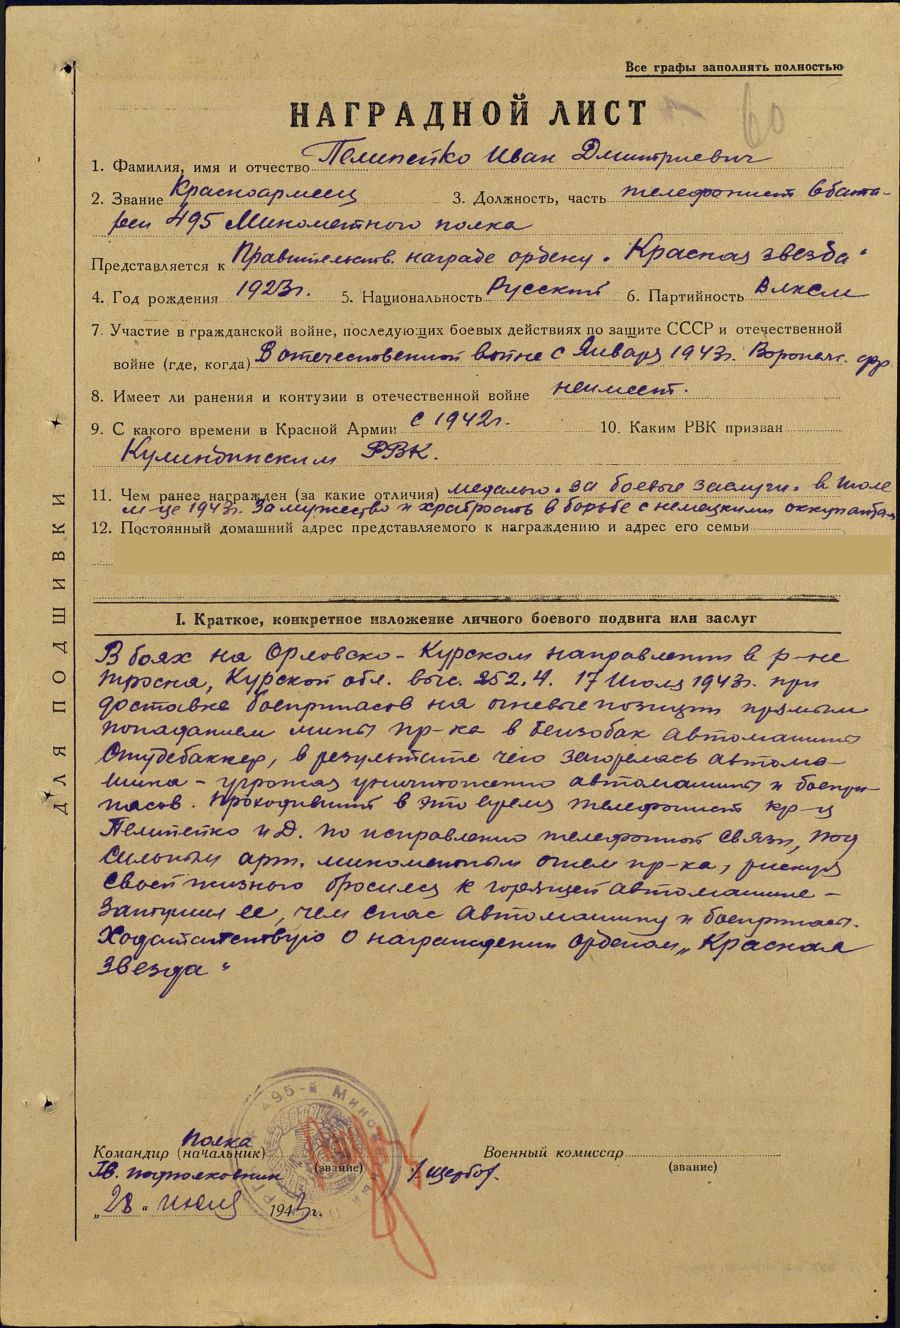 Все графы заполнять полностью
60
НАГРАДНОЙ ЛИСТ
1. Фамилия, имя и отчество Пелипейко Иван Дмитриевич
2. Звание Красноармеец 3. Должность, часть телефонист в бата-
реи 495 Минометного полка
Представляется к Правительств. награде ордену „Красная звезда“
4. Год рождения 1923г. 5. Национальность Русский 6. Партийность Влксм
7. Участие в гражданской войне, последующих боевых действиях по защите СССР и отечественной
войне (где, когда) В отечественной войне с Января 1943г. Воронеж. фр
8. Имеет ли ранения и контузии в отечественной войне неимеет.
9. С какого времени в Красной Армии с 1942г. 10. Каким РВК призван
РВК.
11. Чем ранее награжден (за какие отличия) медалью „за боевые заслуги“ в Июле
м-це 1943г. За мужество и храбрость в борьбе с немецкими оккупанта
12. Постоянный домашний адрес представляемого к награждению и адрес его семьи
ДЛЯ ПОДШИВКИ
I. Краткое, конкретное изложение личного боевого подвига или заслуг
В боях на Орловско-Курском направлении в р-не
Тросна, Курской обл. выс. 252.4. 17 Июля 1943г. при
доставке боеприпасов на огневые позиции прямым
попаданием мины пр-ка в бензобак автомашины
Студебаккер, в результате чего загорелась автома-
шина - угрожая уничтожению автомашины и боепри-
пасов. Проходивший в это время телефонист кр-ц
Пелипейко И.Д. по исправлению телефонной связи, под
сильным арт. минометным огнем пр-ка, рискуя
своей жизнью бросился к горящей автомашине -
затушил ее, чем спас автомашину и боеприпасы.
Ходатайствую о награждении орденом „Красная
Звезда“
495-й Миномётный
Командир (начальник) полка
Военный комиссар
Гв. подполковник (звание) /Щербов/.
(звание)
„28“ июля 1943г.